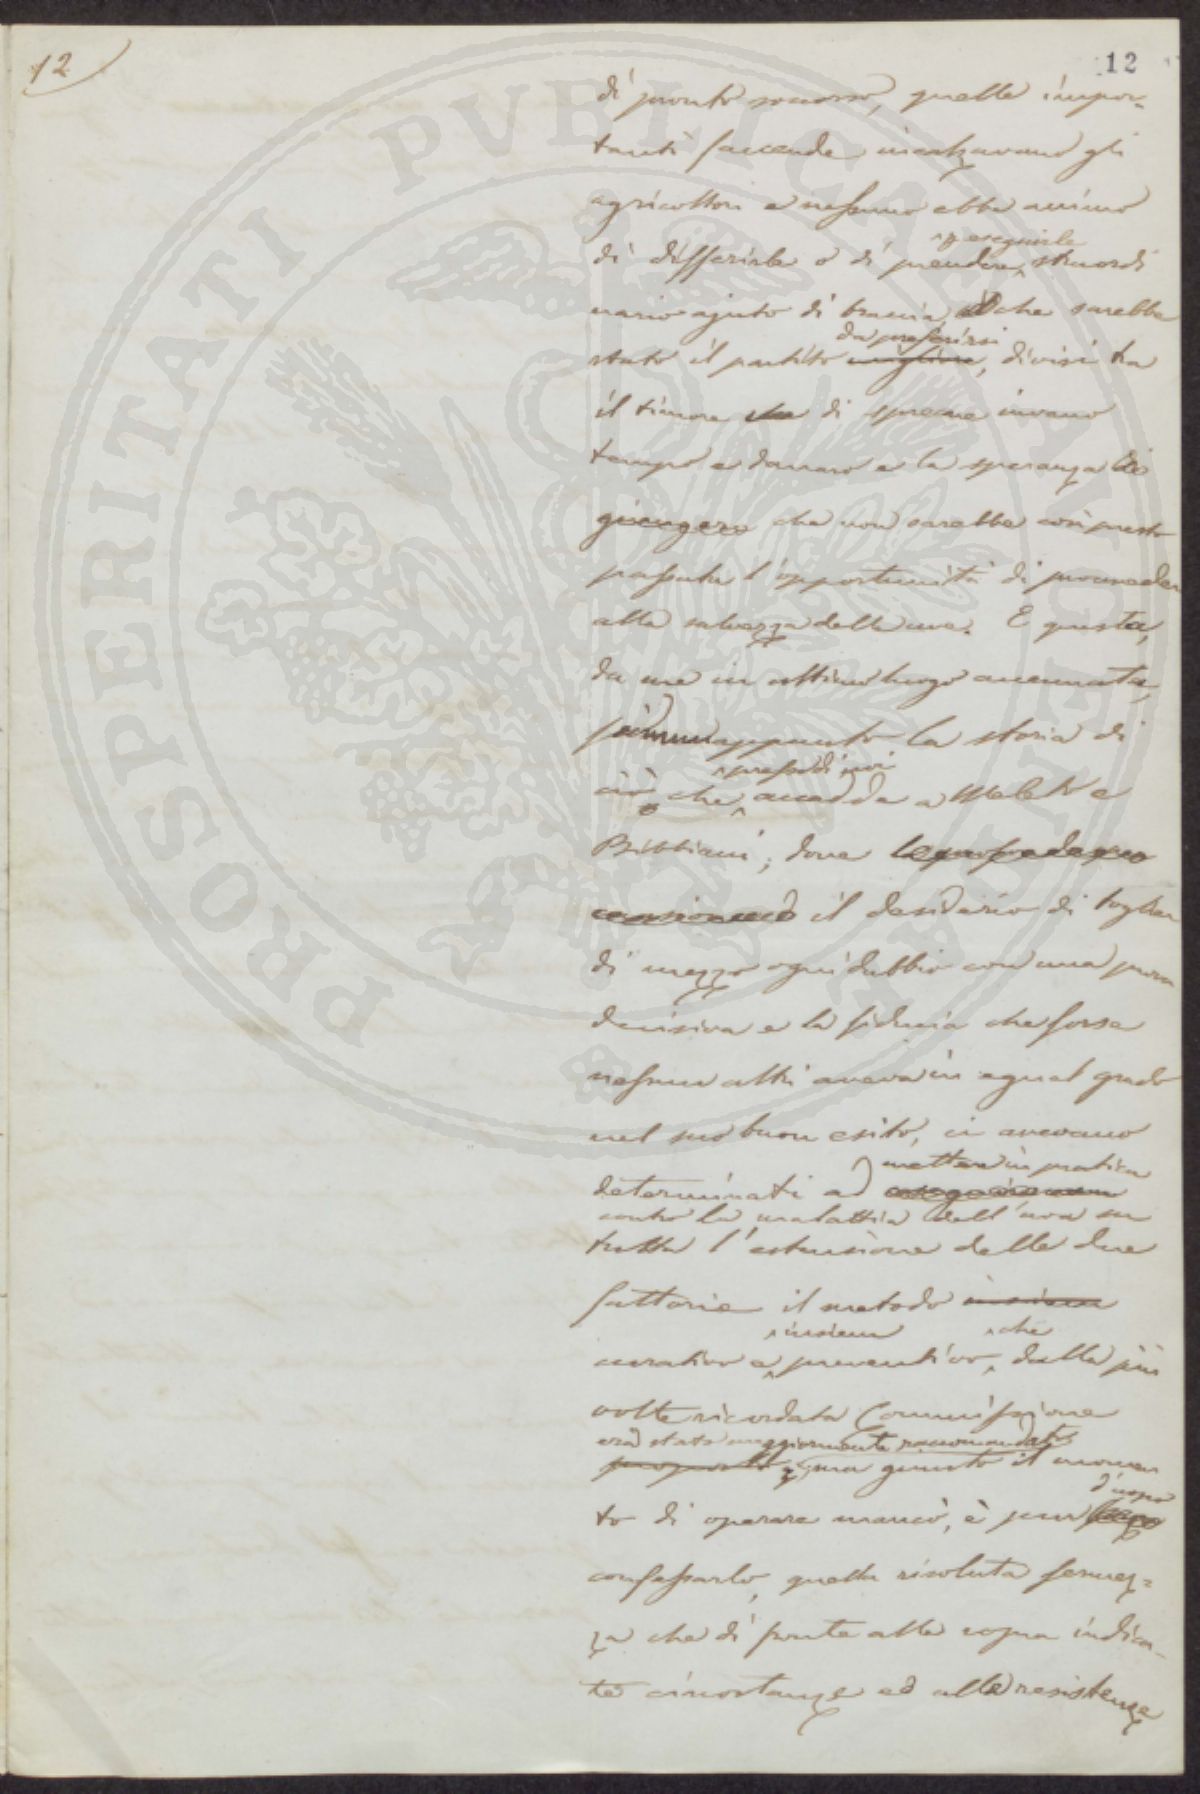 12
12
di pronto soccorso, quelle impor-
tanti faccende incalzavano gli
agricoltori e nessuno ebbe animo
per eseguirle
di differirle o di prendere straordi
nario ajuto di braccia che sarebbe
da preferirsi
stato il partito migliore, divisi tra
il timore di sprecare invano
tempo e danaro e la speranza
che non sarebbe così presto
passata l'opportunità di provvedere
alla salvezza delle uve. E questa,
da me in ultimo luogo accennata,
appunto la storia di
presso di noi
ciò che accadde a Meleto e
Bibbiani; dove
il desiderio di toglier
di mezzo ogni dubbio con una prova
decisiva e la fiducia che forse
nessun altri aveva in egual grado
nel suo buon esito, ci avevano
mettere in pratica
determinati ad
contro la malattia dell'uva su
tutta l'estensione delle due
fattorie il metodo insieme
insieme che
curativo e preventivo, dalla più
volte ricordata Commissione
era stato maggiormente raccomandato
proposto; ma giunto il momen
d'uopo
to di operare mancò, è pur
confessarlo, quella risoluta fermez=
za che di fronte alle sopra indica-
te circostanze ed alle resistenze
PROSPERITATI PUBLICAE AUGENDAE